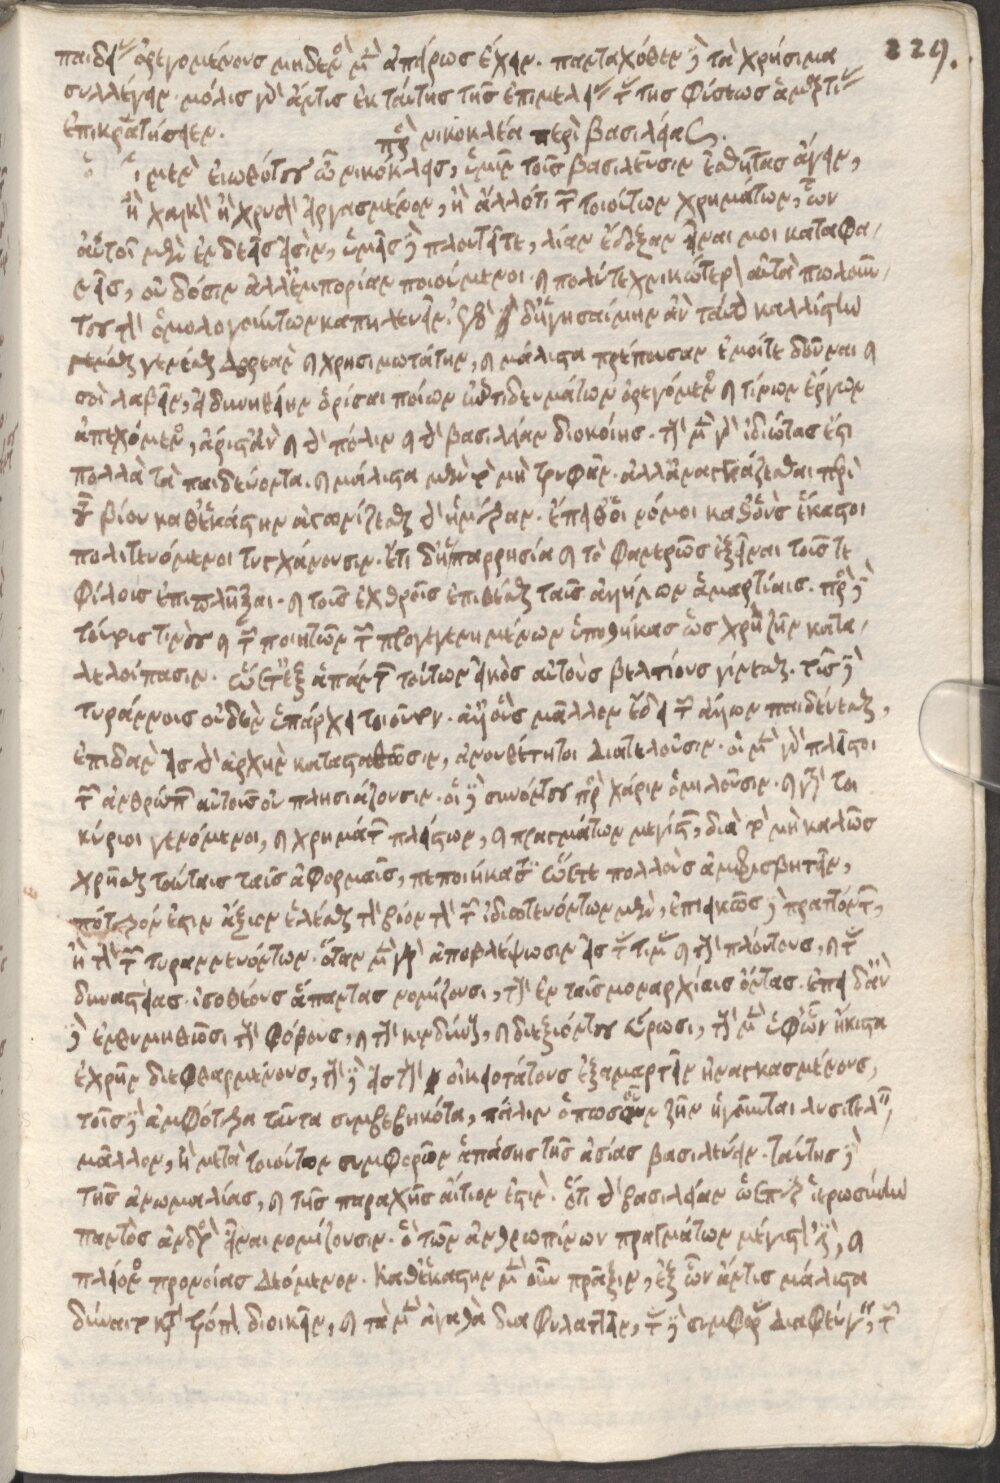 229.
παιδείας ὀρεγομένους μηδενὸς μὲν ἀπείρως ἔχειν. πανταχόθεν δὲ τὰ χρήσιμα
συλλέγειν. μόλις γὰρ ἄν τις ἐκ ταύτης τῆς ἐπιμελείας τὰς τῆς φύσεως ἁμαρτίας
ἐπικρατήσειεν.
πρὸς νικοκλέα περὶ βασιλείας.
οἱ μὲν εἰωθότες ὦ νικόκλεις, ὑμῖν τοῖς βασιλεῦσιν ἐσθῆτας ἄγειν,
ἢ χαλκὸν ἢ χρυσὸν εἰργασμένον, ἢ ἄλλό τι τῶν τοιούτων χρημάτων, ὧν
αὐτοὶ μὲν ἐνδεεῖς εἰσὶν, ὑμεῖς δὲ πλουτεῖτε, λίαν ἔδοξαν εἶναι μοι καταφα-
νεῖς, οὐ δόσιν ἀλλ' ἐμπορίαν ποιούμενοι. καὶ πολὺ τεχνικώτερον αὐτὰ πωλοῦν-
τες τῶν ὁμολογούντων καπηλεύειν. ἐγὼ δ' ἡγησάμην ἂν ταύτην καλλίστην
γενέσθαι δωρεὰν καὶ χρησιμωτάτην, καὶ μάλιστα πρέπουσαν ἐμοί τε δοῦναι καὶ
σοὶ λαβεῖν, εἰ δυνηθείην ὁρίσαι ποίων ἐπιτηδευμάτων ὀρεγόμενος καὶ τίνων ἔργων
ἀπεχόμενος, ἄριστ' ἂν καὶ τὴν πόλιν καὶ τὴν βασιλείαν διοικοίης. τοὺς μὲν γὰρ ἰδιώτας ἐστὶ
πολλὰ τὰ παιδεύοντα. καὶ μάλιστα μὲν τὸ μὴ τρυφᾶν. ἀλλ' ἀναγκάζεσθαι περὶ
τοῦ βίου καθ' ἑκάστην ἀγωνίζεσθαι τὴν ἡμέραν. ἔπειθ' οἱ νόμοι καθ' οὓς ἕκαστοι
πολιτευόμενοι τυγχάνουσιν. ἔτι δ' ἡ παρρησία καὶ τὸ φανερῶς ἐξεῖναι τοῖς τε
φίλοις ἐπιπλῆξαι. καὶ τοῖς ἐχθροῖς ἐπιθέσθαι ταῖς ἀλλήλων ἁμαρτίαις. πρὸς δὲ
τούτοις τινὲς καὶ τῶν ποιητῶν τῶν προγεγενημένων ὑποθήκας ὡς χρὴ ζῆν κατα-
λελοίπασιν. ὥστ' ἐξ ἁπάντων τούτων εἰκὸς αὐτοὺς βελτίους γίνεσθαι. τοῖς δὲ
τυράννοις οὐδὲν ὑπάρχει τοιοῦτον. ἀλλ' οὓς μᾶλλον ἔδει τῶν ἄλλων παιδεύεσθαι,
ἐπειδὰν εἰς τὴν ἀρχὴν καταστῶσιν, ἀνουθέτητοι διατελοῦσιν. οἱ μὲν γὰρ πλεῖστοι
τῶν ἀνθρώπων αὐτοῖς οὐ πλησιάζουσιν. οἱ δὲ συνόντες πρὸς χάριν ὁμιλοῦσιν. καὶ γάρ τοι
κύριοι γενόμενοι, καὶ χρημάτων πλείστων, καὶ πραγμάτων μεγίστων, διὰ τὸ μὴ καλῶς
χρῆσθαι ταύταις ταῖς ἀφορμαῖς, πεποιήκασιν ὥστε πολλοὺς ἀμφισβητεῖν,
πότερόν ἐστιν ἄξιον ἑλέσθαι τὸν βίον τὸν τῶν ἰδιωτευόντων μὲν, ἐπιεικῶς δὲ πραττόντων,
ἢ τὸν τῶν τυραννευόντων. ὅταν μὲν γὰρ ἀποβλέψωσιν εἰς τὰς τιμὰς καὶ τοὺς πλούτους, καὶ τὰς
δυναστείας. ἰσοθέους ἅπαντας νομίζουσι, τοὺς ἐν ταῖς μοναρχίαις ὄντας. ἐπειδὰν
δὲ ἐνθυμηθῶσι τοὺς φόβους, καὶ τοὺς κινδύνους, καὶ διεξιόντες εὕρωσι, τοὺς μὲν ὑφ' ὧν ἥκιστα
ἐχρῆν διεφθαρμένους, τοὺς δὲ εἰς τοὺς οἰκειοτάτους ἐξαμαρτεῖν ἠναγκασμένους,
τοῖς δὲ ἀμφότερα ταῦτα συμβεβηκότα, πάλιν ὁπωσοῦν ζῆν ἡγοῦνται λυσιτελεῖν,
μᾶλλον, ἢ μετὰ τοιούτων συμφορῶν ἁπάσης τῆς ἀσίας βασιλεύειν. ταύτης δὲ
τῆς ἀνωμαλίας, καὶ τῆς ταραχῆς αἴτιον ἐστὶν. ὅτι τὴν βασιλείαν ὥσπερ ἱερωσύνην
παντὸς ἀνδρὸς εἶναι νομίζουσιν. ὃ τῶν ἀνθρωπίνων πραγμάτων μέγιστόν ἐστι, καὶ
πλείονος προνοίας δεόμενον. καθ' ἑκάστην μὲν οὖν πρᾶξιν, ἐξ ὧν ἄν τις μάλιστα
δύναιτο κατὰ τρόπον διοικεῖν, καὶ τὰ μὲν ἀγαθὰ διαφυλάττειν, τὰς δὲ συμφορὰς διαφεύγειν, τῶν